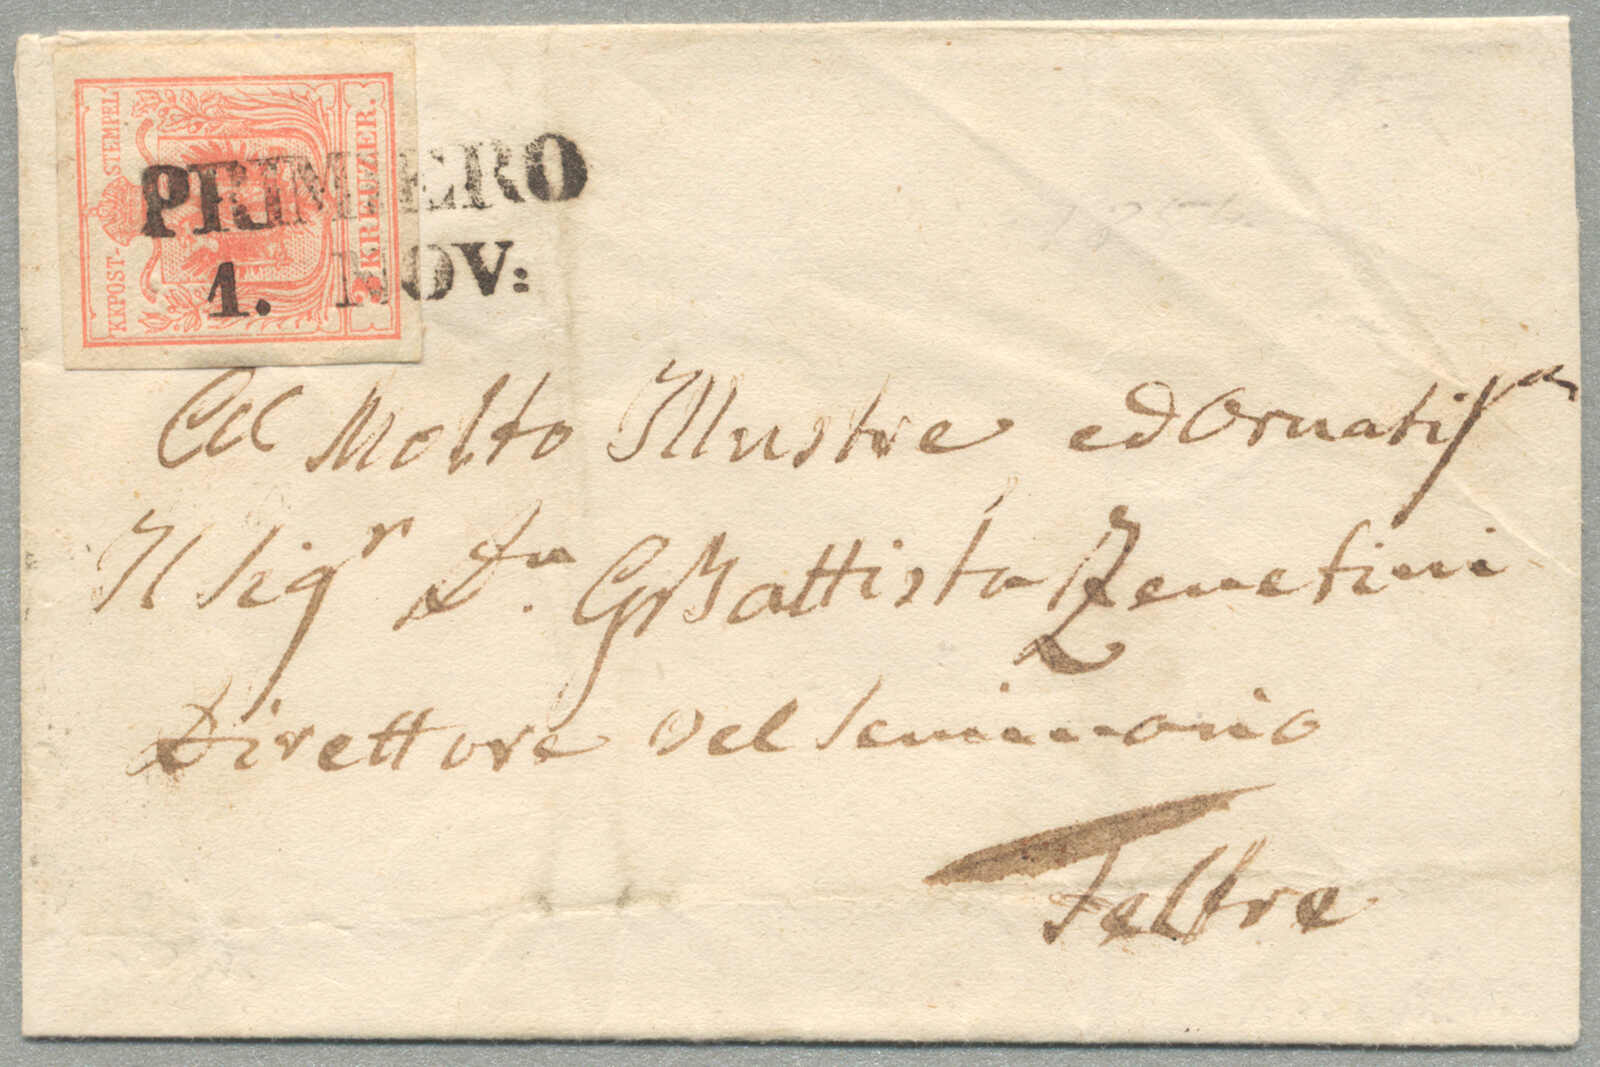 KKPOST-STEMPEL
3 KREUZER.
PRIMIERO
1. NOV:
Al Molto Illustre ed Ornatisṃ
Il Sigr Dn. GBattista Zenetini
Direttore del Seminario
Feltre